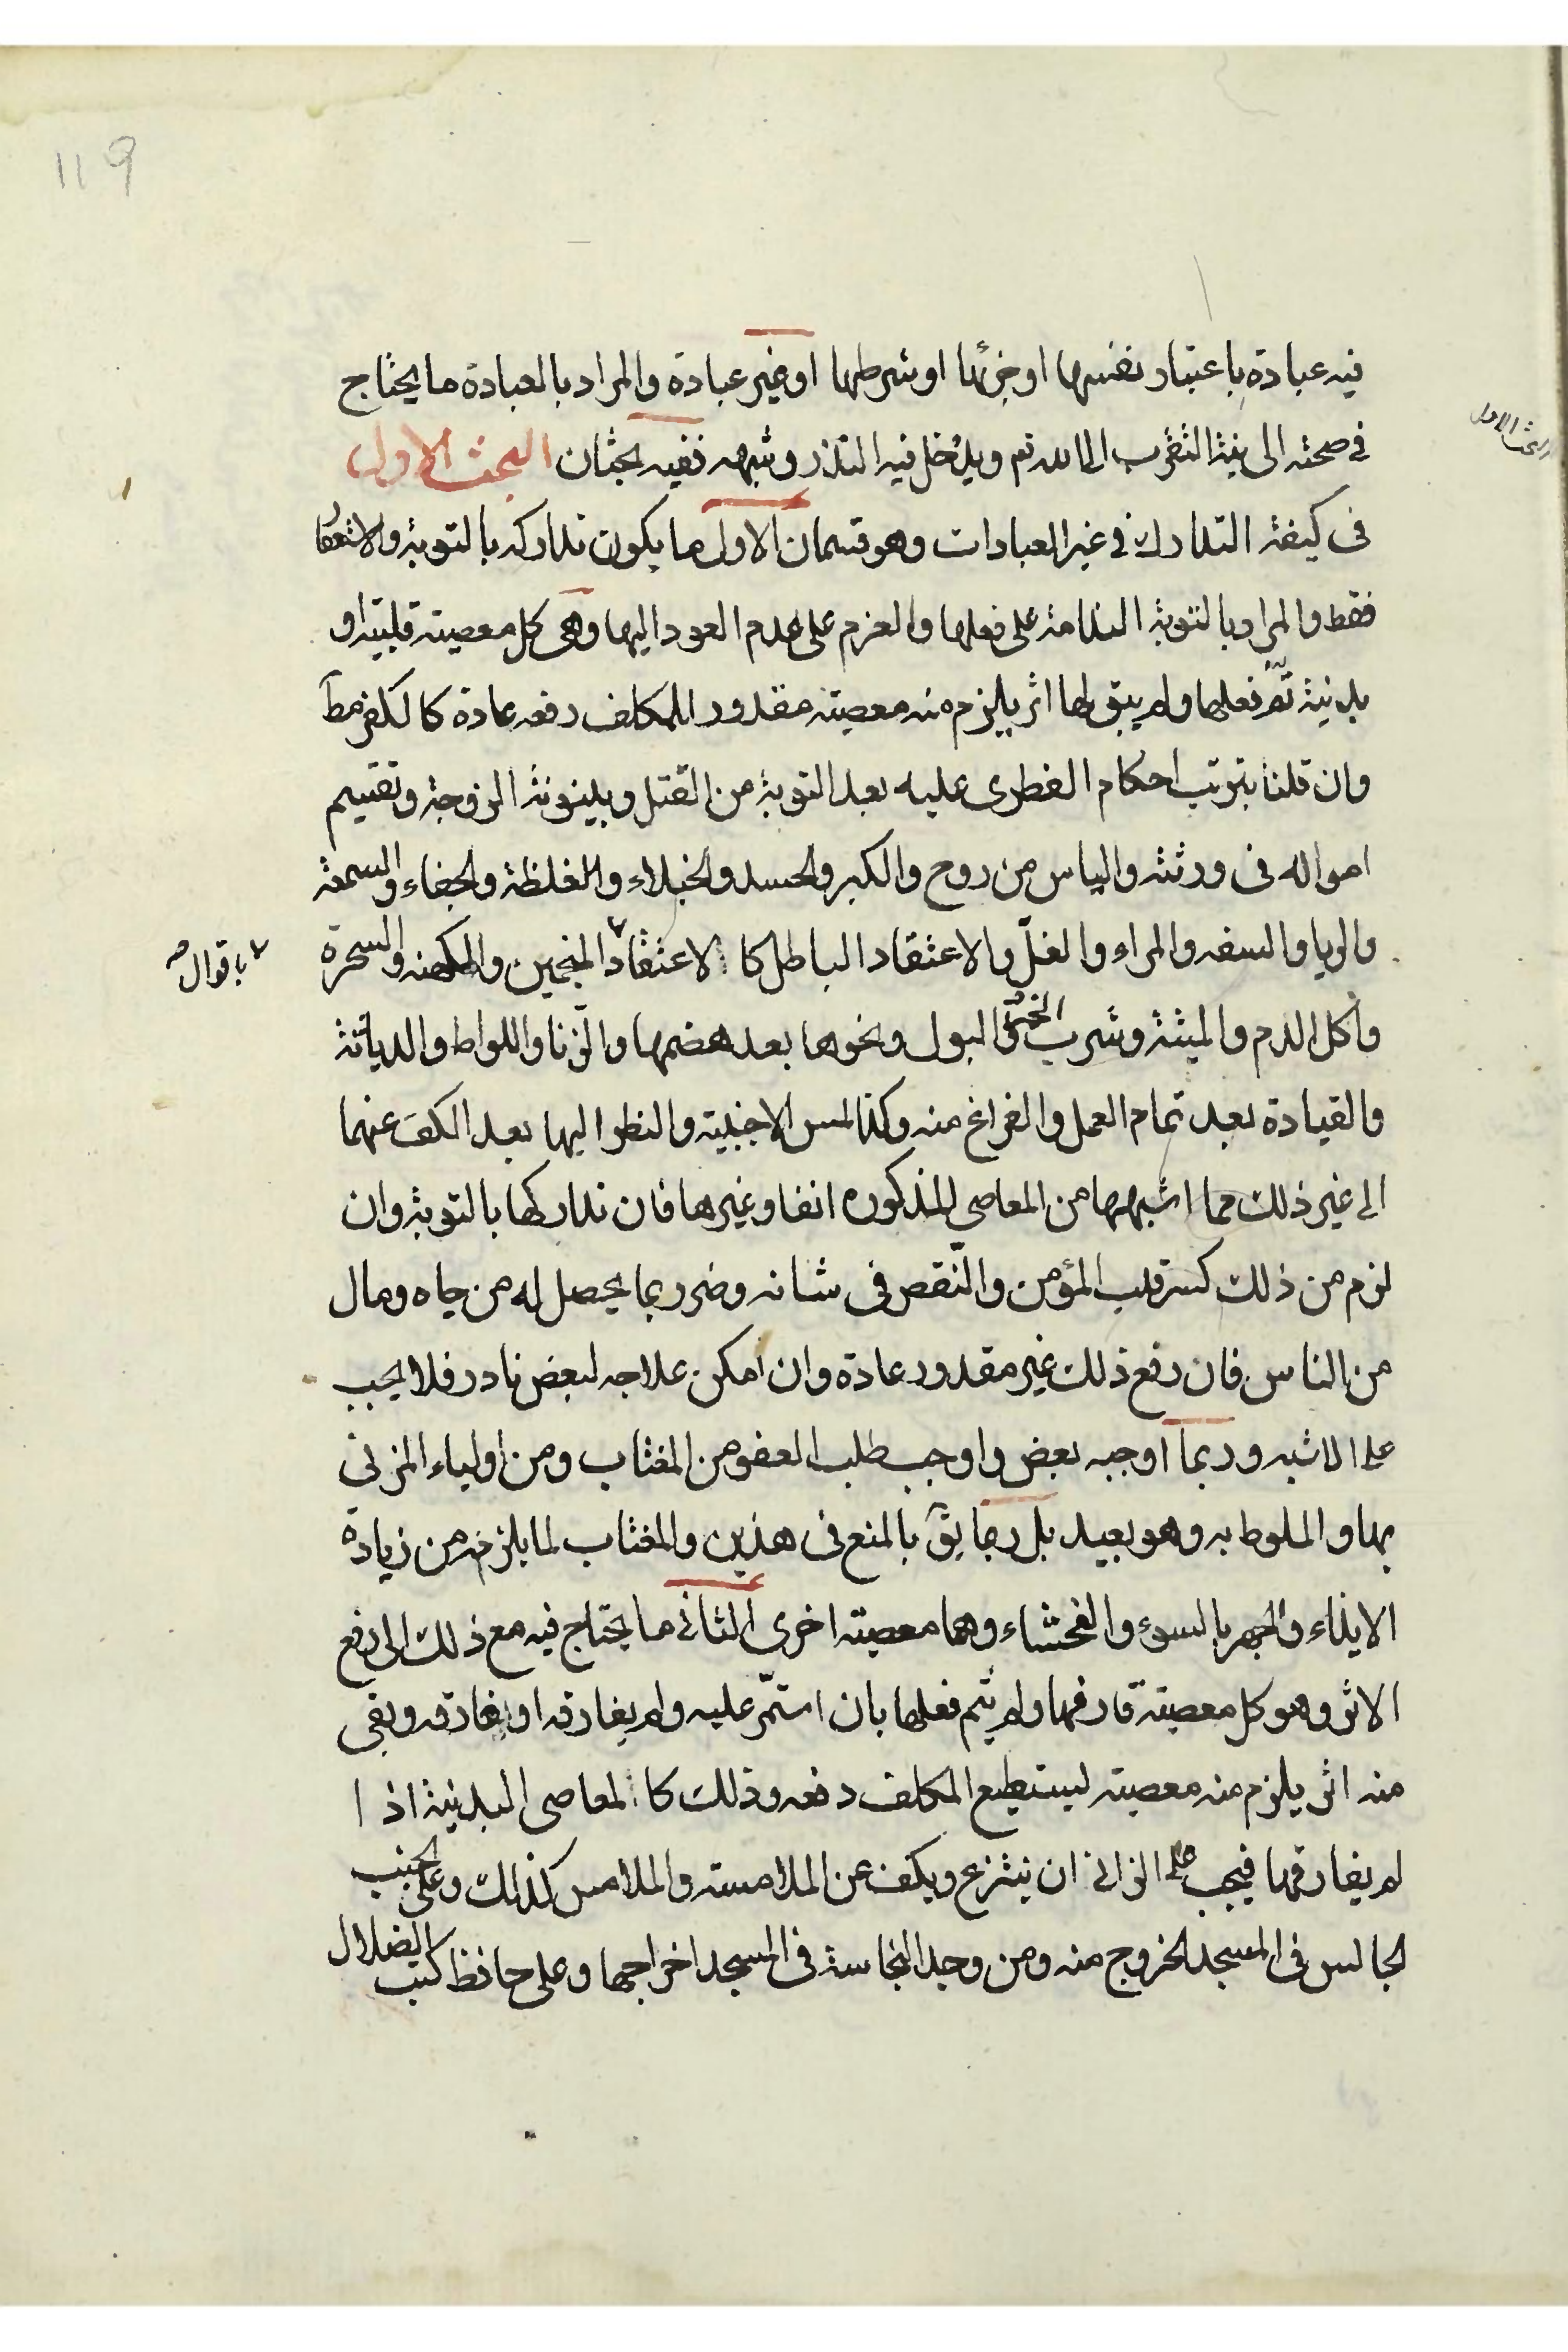 119
البحث الاول
فيه عبادة باعتبار نفسها او جزئها او شرطها او غير عبادة والمراد بالعبادة ما يحتاج
في صحته الى نية التقرب الى الله تعم ويدخل فيه النذر وشبهه ففيه بحثان البحث الاول
في كيفية التدارك في غير العبادات وهو قسمان الاول ما يكون تداركه بالتوبة والاستغفار
فقط والمراد بالتوبة الندامة على فعلها والعزم على عدم العود اليها وهى كل معصيته قلبية او
بدنية تم فعلها ولم يبق لها اثر يلزم منه معصيته مقدور للمكلف رفعه عادة كالكفر مطآ
وان قلنا بترتب احكام الفطرى عليه بعد التوبة من القتل وبينونة الزوجة وتقسيم
امواله فى ورثته والياس من روح والكبر والحسد والخيلاء والغلظة والجفاء والسمعة
والريا والسفه والمراء والغلّ والاعتقاد الباطل كالاعتقاد المنجمين والكهنه والسحرة
باقوال صح
واكل الدم والميتة وشرب الخمر والبول ونحوها بعد هضمها والزنا واللواط والدياثة
والقيادة بعد تمام العمل والفراغ منه وكذا لمس الاجنبية والنظر اليها بعد الكف عنهما
الى غير ذلك مما اشبهها من المعاصي المذكوره انفا وغيرها فان تداركها بالتوبة وان
لزم من ذلك كسر قلب المؤمن والنّقص فى شانه وضرر بما يحصل له من جاه ومال
من الناس فان رفع ذلك غير مقدور عادة وان امكن علاجه لبعض نادر فلا يجب
على الاشبه وربما اوجبه بعض واوجب طلب العفو من المغتاب ومن اولياء المزنى
بها والملوط به وهو بعيد بل ربما يقٓ بالمنع فى هذين والمغتاب لما يلزم من زيادة
الايذاء والجهر بالسوء والفحشاء وهما معصيته اخرى الثاني ما يحتاج فيه مع ذلك الى رفع
الاثر وهو كل معصيته قارفها ولم يتم فعلها بان استمّر عليه ولم يفارقه او يفارقه وبقى
منه اثر يلزم منه معصيته ليستطيع المكلف دفعه وذلك كالمعاصى البدنية اذا
لم يفارقها فيجب على الزانى ان ينتزع ويكف عن الملامسته والملامس كذلك وعلى الجنب
الجالس فى المسجد الخروج منه ومن وجد النجاسة فى المسجد اخراجها وعلى حافظ كتب الضلال